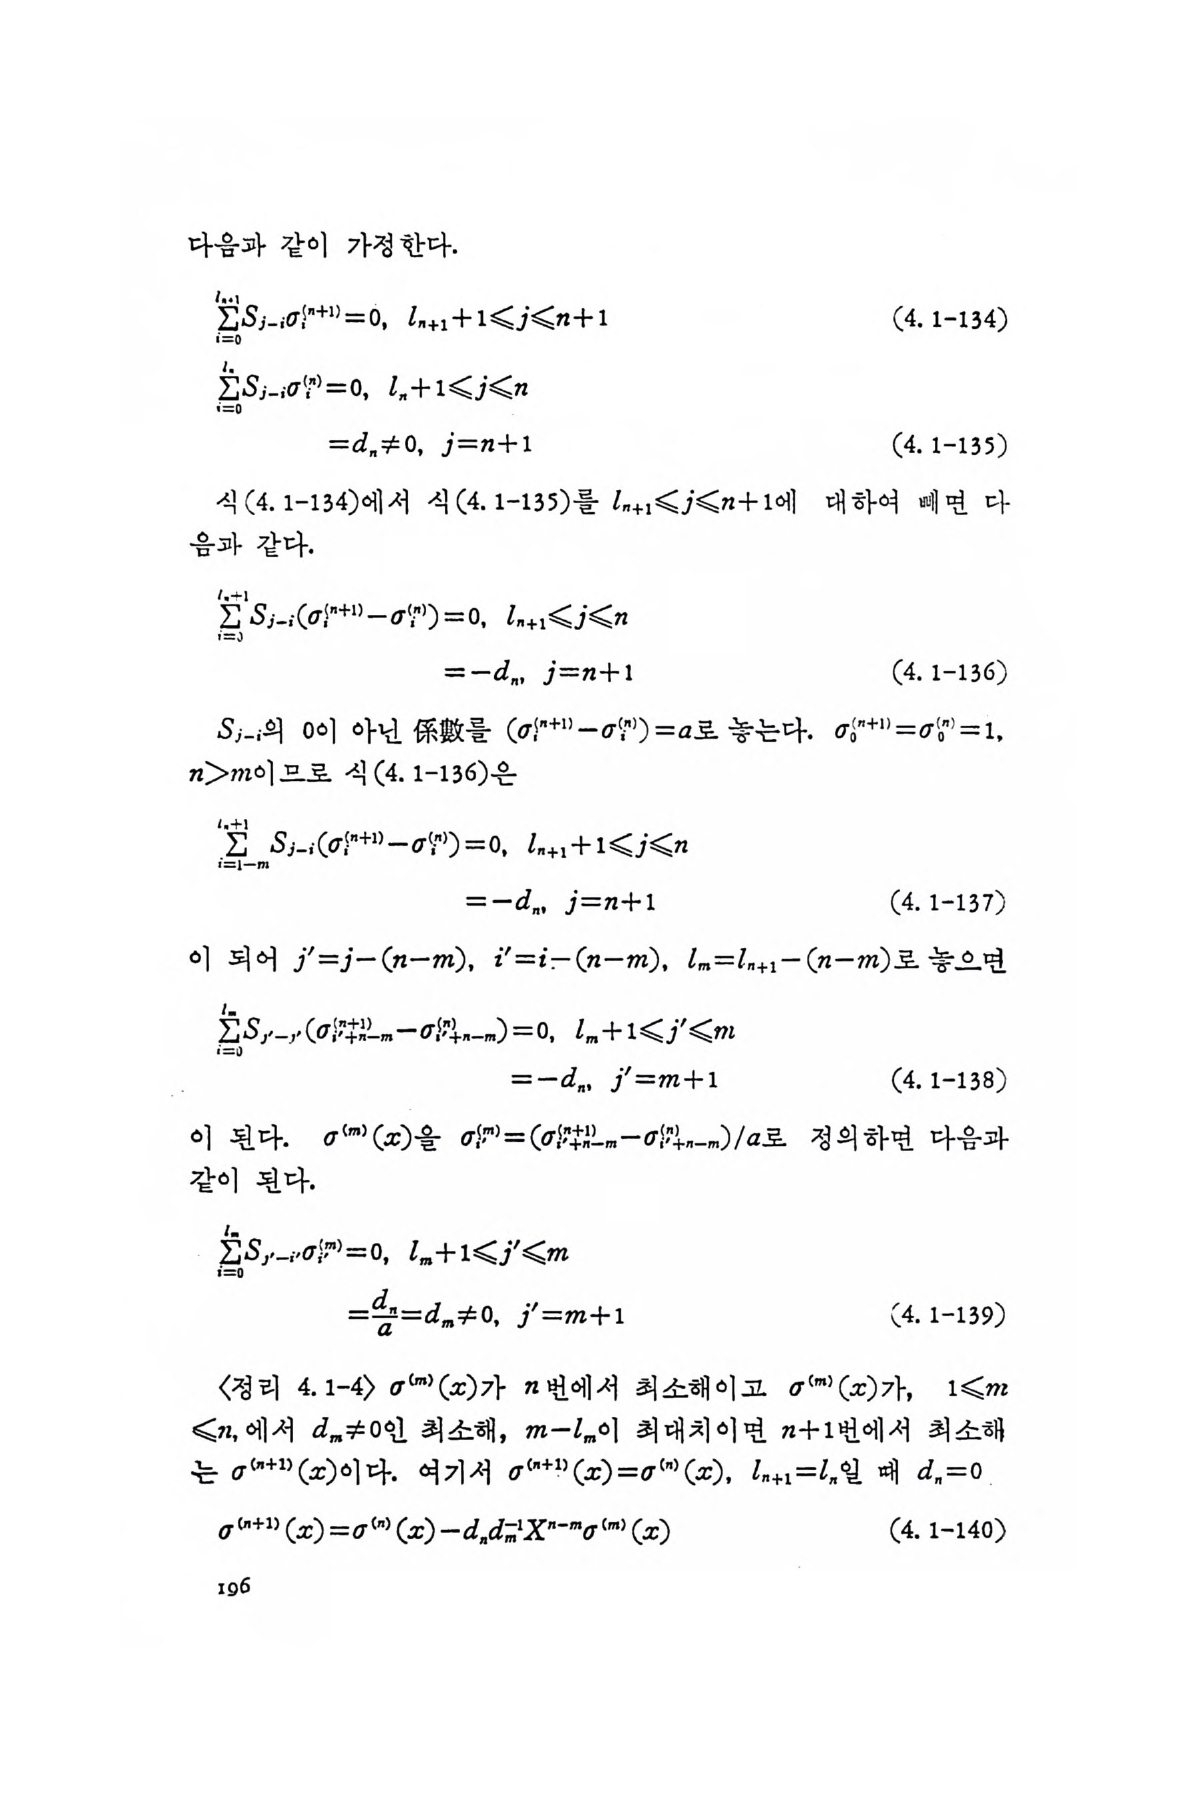 다음과 같이 가정한다.
$\sum_{i=0}^{l_{n+1}} S_{j-i}\sigma_i^{(n+1)}=0,\ l_{n+1}+1\leqq j\leqq n+1$ (4. 1-134)
$\sum_{i=0}^{l_n} S_{j-i}\sigma_i^{(n)}=0,\ l_n+1\leqq j\leqq n$
$=d_n\neq 0,\ j=n+1$ (4. 1-135)
식(4. 1-134)에서 식(4. 1-135)를 $l_{n+1}\leqq j\leqq n+1$에 대하여 빼면 다
음과 같다.
$\sum_{i=0}^{l_n+1} S_{j-i}(\sigma_i^{(n+1)}-\sigma_i^{(n)})=0,\ l_{n+1}\leqq j\leqq n$
$=-d_n,\ j=n+1$ (4. 1-136)
$S_{j-i}$의 0이 아닌 係數를 $(\sigma_i^{(n+1)}-\sigma_i^{(n)})=a$로 놓는다. $\sigma_0^{(n+1)}=\sigma_0^{(n)}=1,$
$n>m$이므로 식(4. 1-136)은
$\sum_{i=1-m}^{l_n+1} S_{j-i}(\sigma_i^{(n+1)}-\sigma_i^{(n)})=0,\ l_{n+1}+1\leqq j\leqq n$
$=-d_n,\ j=n+1$ (4. 1-137)
이 되어 $j'=j-(n-m),\ i'=i-(n-m),\ l_m=l_{n+1}-(n-m)$로 놓으면
$\sum_{i=0}^{l_m} S_{j'-j'}(\sigma_{i'+n-m}^{(n+1)}-\sigma_{i'+n-m}^{(n)})=0,\ l_m+1\leqq j'\leqq m$
$=-d_n,\ j'=m+1$ (4. 1-138)
이 된다. $\sigma^{(m)}(x)$을 $\sigma_{i'}^{(m)}=(\sigma_{i'+n-m}^{(n+1)}-\sigma_{i'+n-m}^{(n)})/a$로 정의하면 다음과
같이 된다.
$\sum_{i=0}^{l_m} S_{j'-i'}\sigma_{i'}^{(m)}=0,\ l_m+1\leqq j'\leqq m$
$=\frac{d_n}{a}=d_m\neq 0,\ j'=m+1$ (4. 1-139)
〈정리 4. 1-4〉 $\sigma^{(m)}(x)$가 $n$번에서 최소해이고 $\sigma^{(m)}(x)$가, $1\leqq m$
$\leqq n$, 에서 $d_m\neq 0$인 최소해, $m-l_m$이 최대치이면 $n+1$번에서 최소해
는 $\sigma^{(n+1)}(x)$이다. 여기서 $\sigma^{(n+1)}(x)=\sigma^{(n)}(x),\ l_{n+1}=l_n$일 때 $d_n=0$
$\sigma^{(n+1)}(x)=\sigma^{(n)}(x)-d_nd_m^{-1}X^{n-m}\sigma^{(m)}(x)$ (4. 1-140)
196